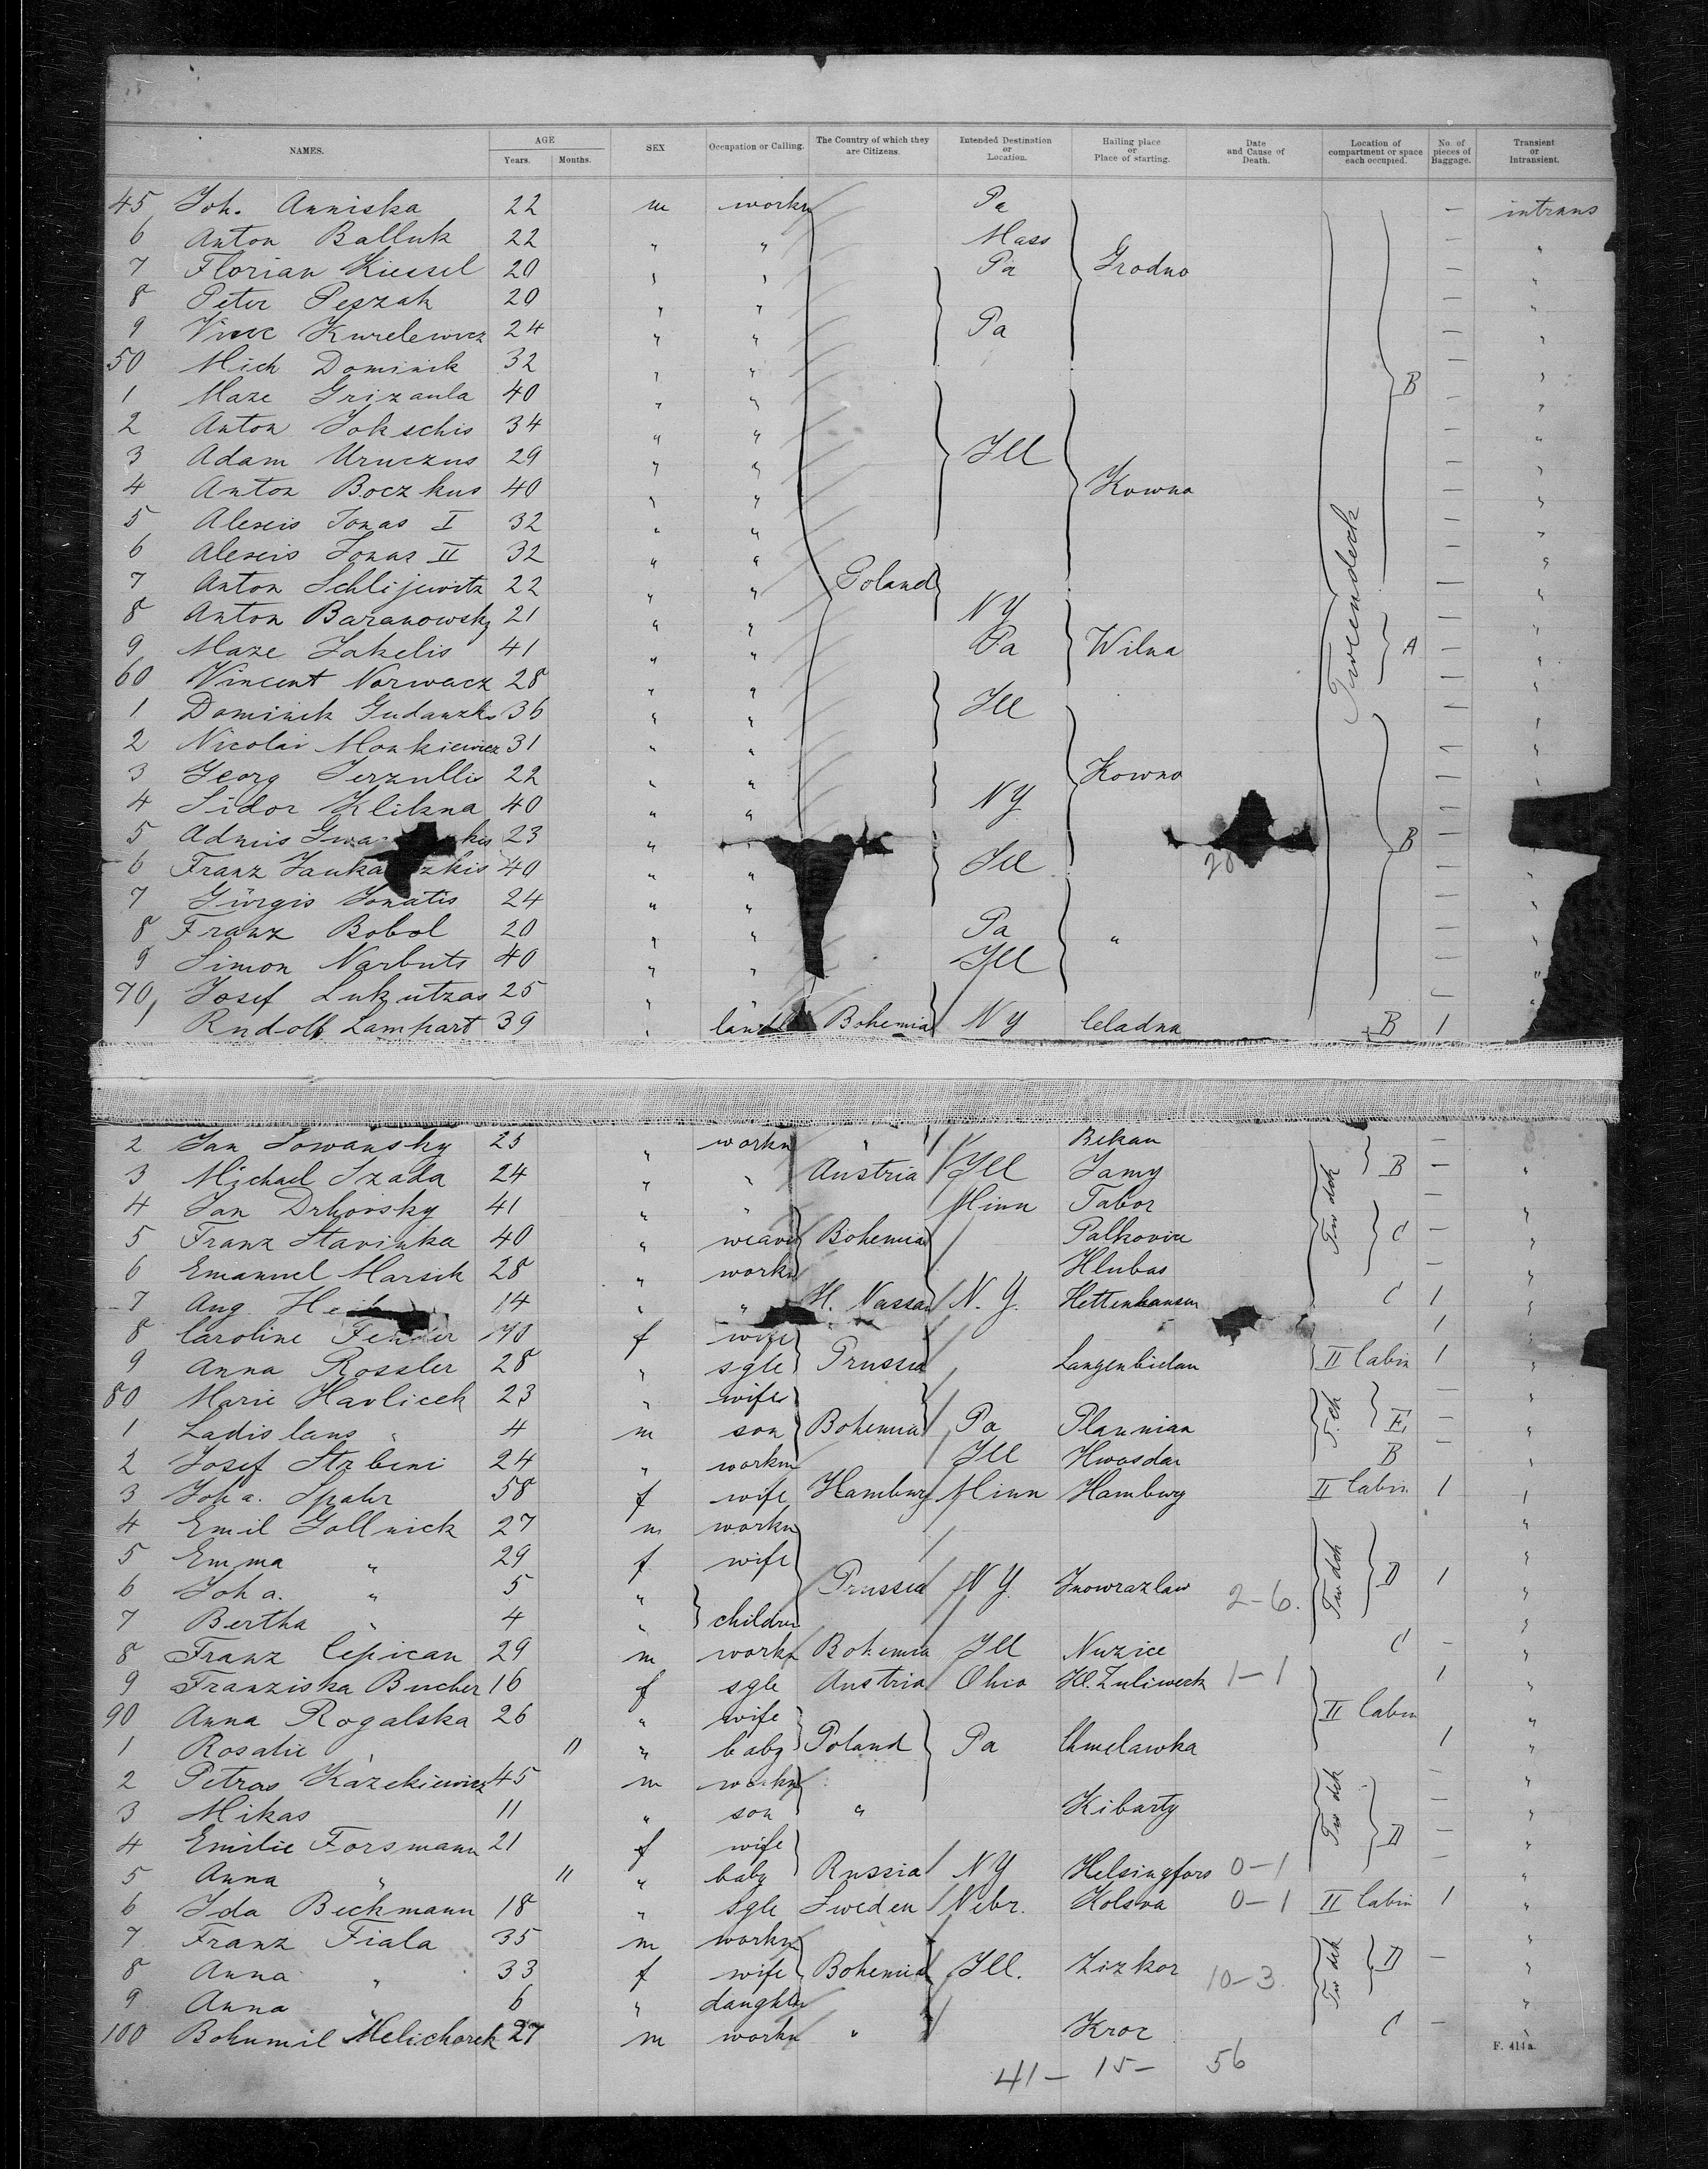 NAMES. AGE Years. Months. SEX Occupation or Calling. The Country of which they are Citizens. Intended Destination or Location. Hailing place or Place of starting. Date and Cause of Death. Location of compartment or space each occupied. No. of pieces of Baggage. Transient or Intransient.
45 Joh. Anniska 22 m workn Pa — intrans
6 Anton Balluk 22 " " Mass — "
7 Florian Kiessel 20 " " Pa Grodno — "
8 Peter Peszak 20 " " — "
9 Vinc Kurelewicz 24 " " Pa — "
50 Mich Dominik 32 " " — "
1 Maze Grizaula 40 " " B — "
2 Anton Jokschis 34 " " — "
3 Adam Uruczus 29 " " Ill — "
4 Anton Boczkus 40 " " Kowno — "
5 Alexis Jonas I 32 " " — "
6 Alexis Jonas II 32 " " — "
7 Anton Schlijewitz 22 " " Poland — "
8 Anton Baranowsky 21 " " NY — "
9 Maze Jakelis 41 " " Pa Wilna Tweendeck A — "
60 Vincent Norwacz 28 " " — "
1 Dominik Gudanzks 36 " " Ill — "
2 Nicolai Monkiewicz 31 " " — "
3 Georg Jerzullis 22 " " Kowno — "
4 Sidor Klikna 40 " " NY —
5 Admis 23 " " B —
6 Franz 40 " " Ill 20 — "
7 Gürgis Jonatis 24 " " — "
8 Franz Bobol 20 " " Pa " —
9 Simon Narbuts 40 " " Ill — "
70 Josef Lukutzas 25 " " — "
1 Rudolf Lampart 39 " Bohemia NY Celadna B 1
2 Jan Sowansky 25 " workn " Bekau —
3 Michael Szada 24 " " Austria Ill Jamy B — "
4 Jan Drhovsky 41 " " Minn Tabor Tw dck — "
5 Franz Stavinka 40 " weaver Bohemia Palkovice C — "
6 Emanuel Marsik 28 " workn Hlubas — "
7 Aug. 14 " " H. Nassau N. Y. Hettenhausen C 1 "
8 Caroline 40 f wife 1
9 Anna Rossler 28 " sgle Prussia Langenbielau II Cabin 1 "
80 Marie Havlicek 23 " wife — "
1 Ladislaus " 4 m son Bohemia Pa Plannian E — "
2 Josef Strbeni 24 " workn Ill Hwosdar B — "
3 Joha. Spahr 58 f wife Hamburg Minn Hamburg II Cabin 1 "
4 Emil Gollnick 27 m workn "
5 Emma " 29 f wife "
6 Joha. " 5 " Prussia N Y. Inowrazlaw 2-6. Tw dck D 1 "
7 Bertha " 4 " children "
8 Franz Cepican 29 m workn Bohemia Ill Nuzice C — "
9 Franziska Bucher 16 f sgle Austria Ohio Kl. Zuliweck 1-1 1 "
90 Anna Rogalska 26 " wife II Cabin "
1 Rosalie " 11 " baby Poland Pa Chmelawka 1 "
2 Petras Kazekiewicz 45 m workn — "
3 Mikas 11 " son " Kibarty Tw dck — "
4 Emilie Forsmann 21 f wife D — "
5 Anna " 11 " baby Russia NY Helsingfors 0-1 — "
6 Ida Beckmann 18 " sgle Sweden Nebr. Holsva 0-1 II Cabin 1 "
7 Franz Fiala 35 m workn "
8 Anna " 33 f wife Bohemia Ill. Zizkor 10-3. Tw dck D — "
9 Anna " 6 " daughter "
100 Bohumil Melichorek 27 m workn " Kroc C — "
41— 15— 56
F. 414a.